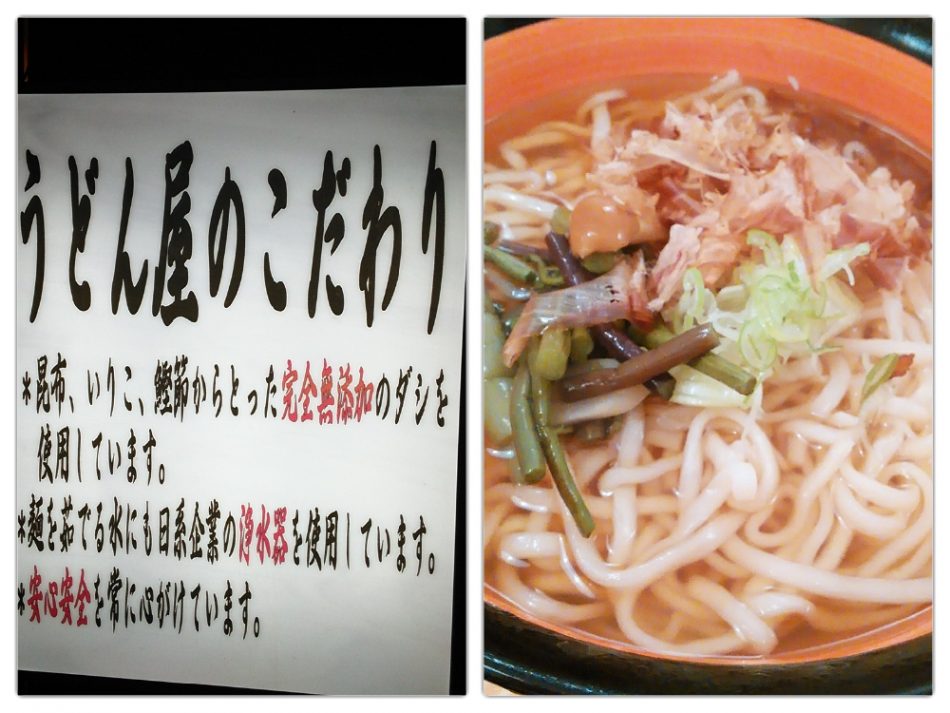 うどん屋のこだわり
*昆布、いりこ、鰹節からとった完全無添加のダシを
使用しています。
*麺を茹でる水にも日系企業の浄水器を使用しています。
*安心安全を常に心がけています。